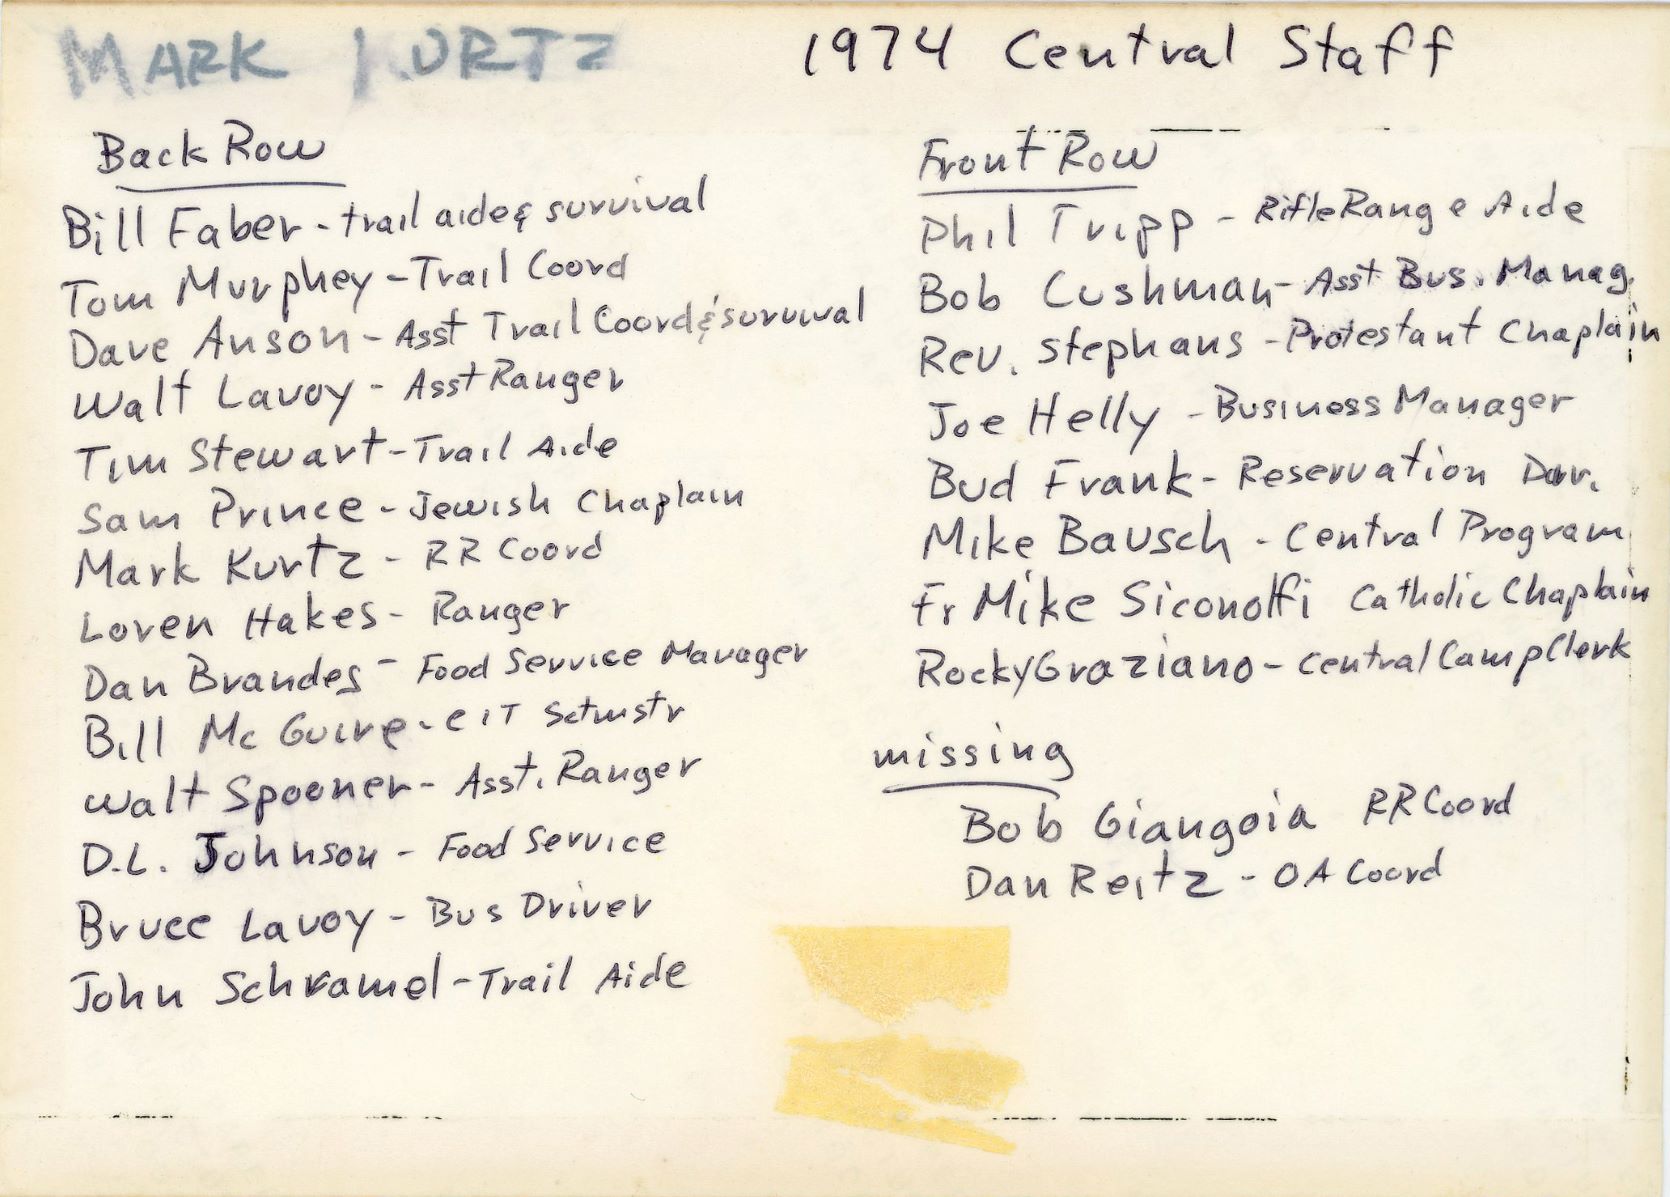 MARK KURTZ
1974 Central Staff
Back Row
Bill Faber - trail aide & survival
Tom Murphey - Trail Coord
Dave Anson - Asst Trail Coord & survival
Walt Lavoy - Asst Ranger
Tim Stewart - Trail Aide
Sam Prince - Jewish Chaplain
Mark Kurtz - RR Coord
Loren Hakes - Ranger
Dan Brandes - Food Service Manager
Bill McGuire - CIT Sctmstr
Walt Spooner - Asst. Ranger
D.L. Johnson - Food Service
Bruce Lavoy - Bus Driver
John Schramel - Trail Aide
Front Row
Phil Tripp - Rifle Range Aide
Bob Cushman - Asst Bus. Manag.
Rev. Stephans - Protestant Chaplain
Joe Helly - Business Manager
Bud Frank - Reservation Dir.
Mike Bausch - Central Program
Fr Mike Siconolfi Catholic Chaplain
Rocky Graziano - Central Camp Clerk
missing
Bob Giangoia RR Coord
Dan Reitz - OA Coord